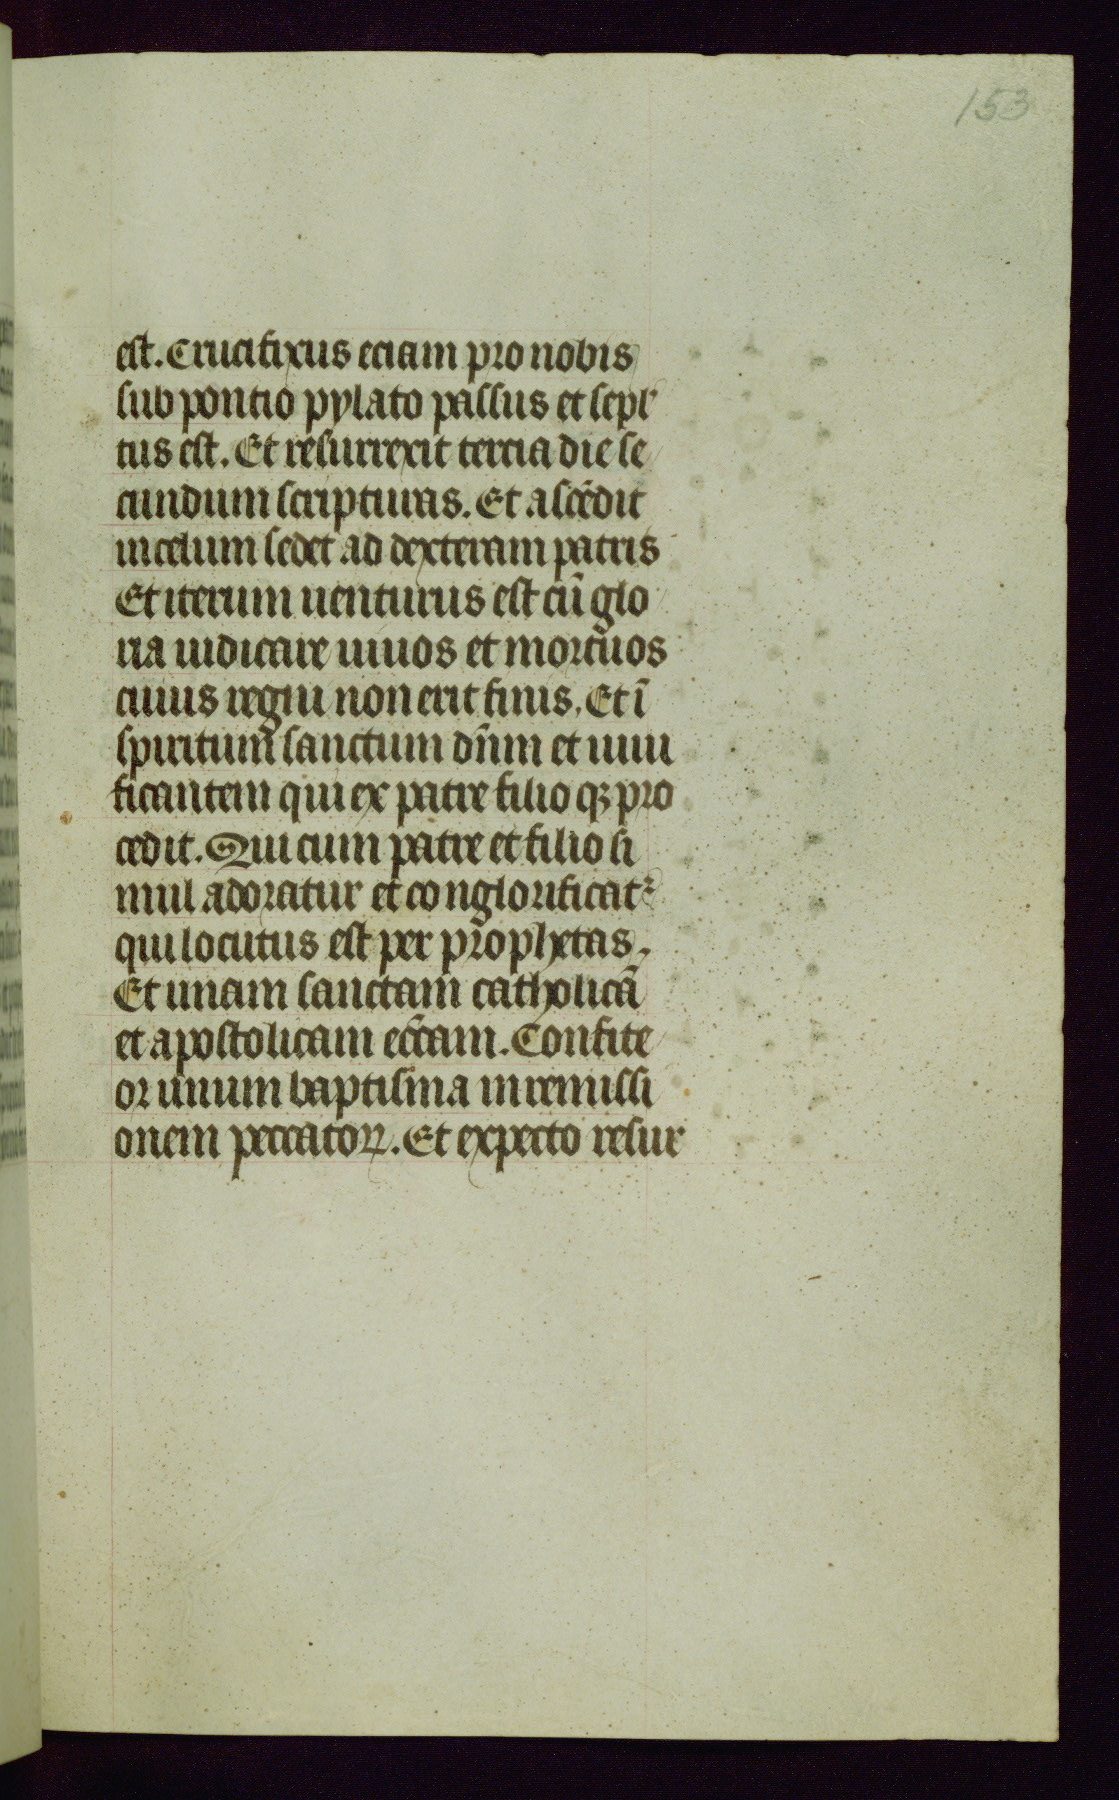 153
est. Crucifixus eciam pro nobis
sub pontio pylato passus et sepl'
tus est. Et resurrexit tercia die se
cundum scripturas. Et ascēdit
in celum sedet ad dexteram patris
Et iterum uenturus est cū glo
ria iudicare uiuos et mortuos
cuius regni non erit finis. Et ī
spiritum sanctum dn̄m et uiui
ficantem qui ex patre filio qꝫ pro
cedit. Qui cum patre et filio si
mul adoratur et conglorificat᷑
qui locutus est per prophetas.
Et unam sanctam catholicā
et apostolicam eccl̄am. Confite
or unum baptisma in remissi
onem peccatoꝝ. Et expecto resur